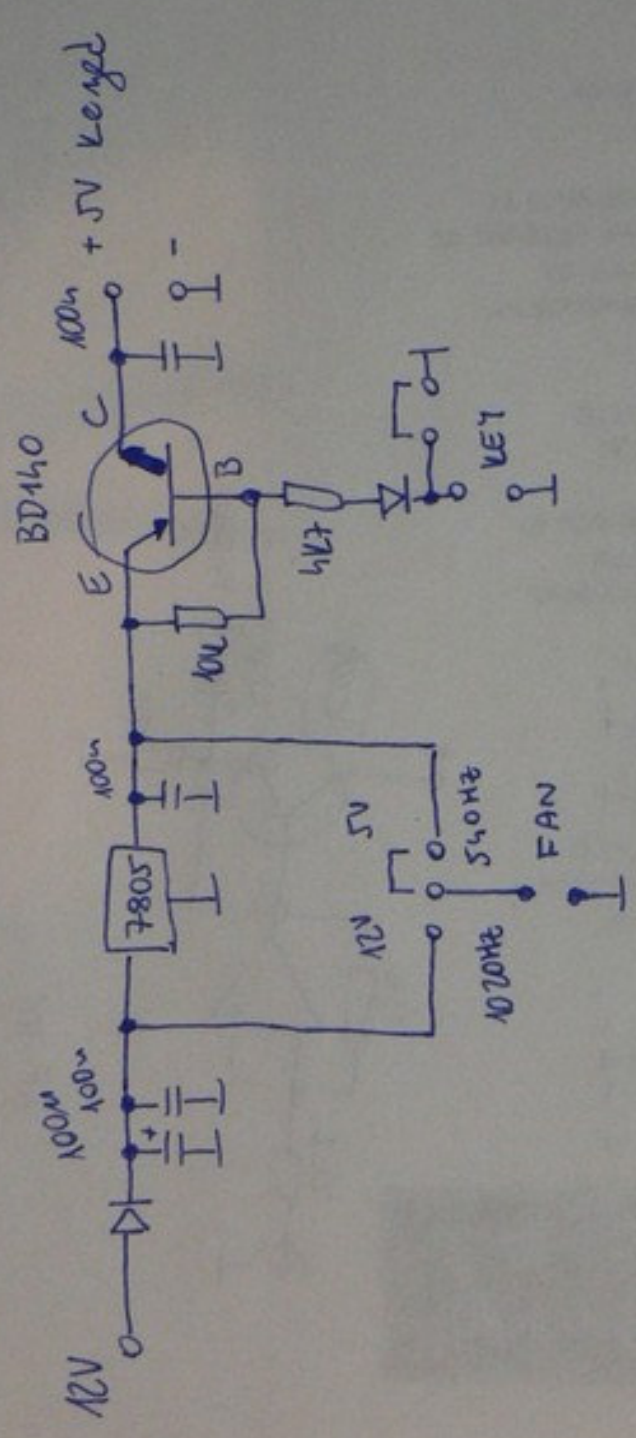 12V
100µ
100n
7805
100n
10k
E
BD140
C
B
4k7
100n
+ 5V keyed
+
-
KEY
12V
5V
1020HZ
540HZ
FAN